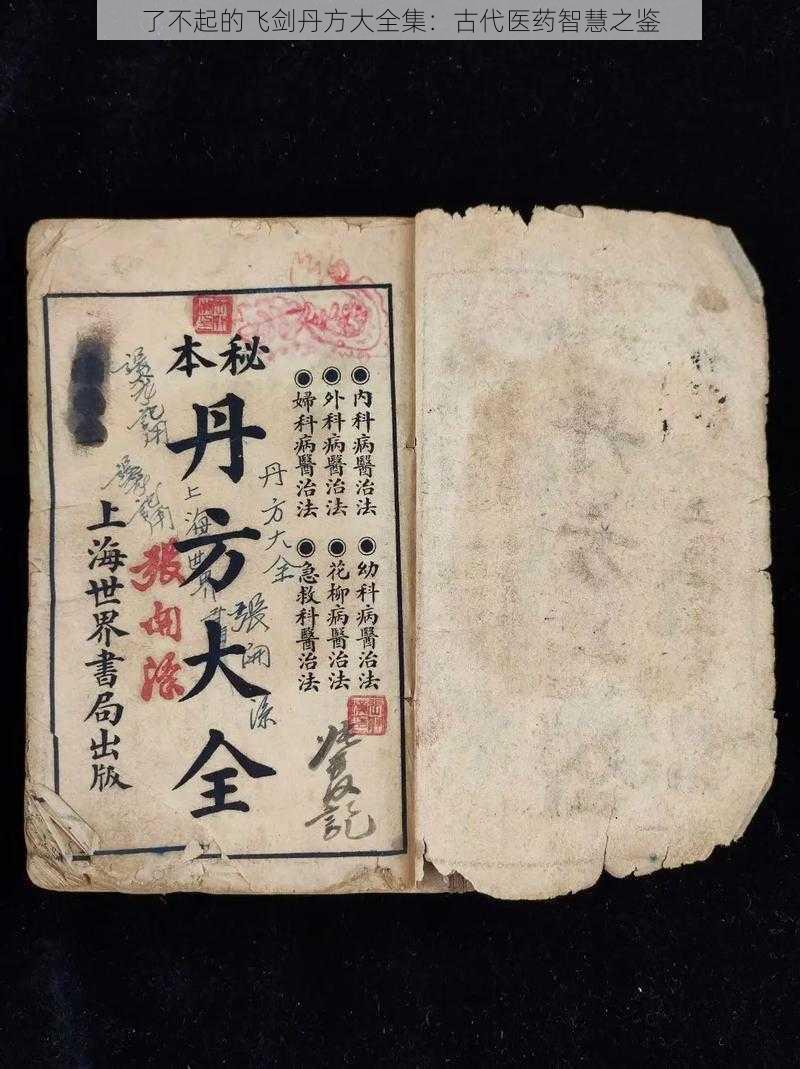 了不起的飞剑丹方大全集：古代医药智慧之鉴
◉內科病醫治法
◉外科病醫治法
◉婦科病醫治法
◉幼科病醫治法
◉花柳病醫治法
◉急救科醫治法
秘本
丹方大全
上海世界書局出版
丹方大全
張開
上海世界書
張
記